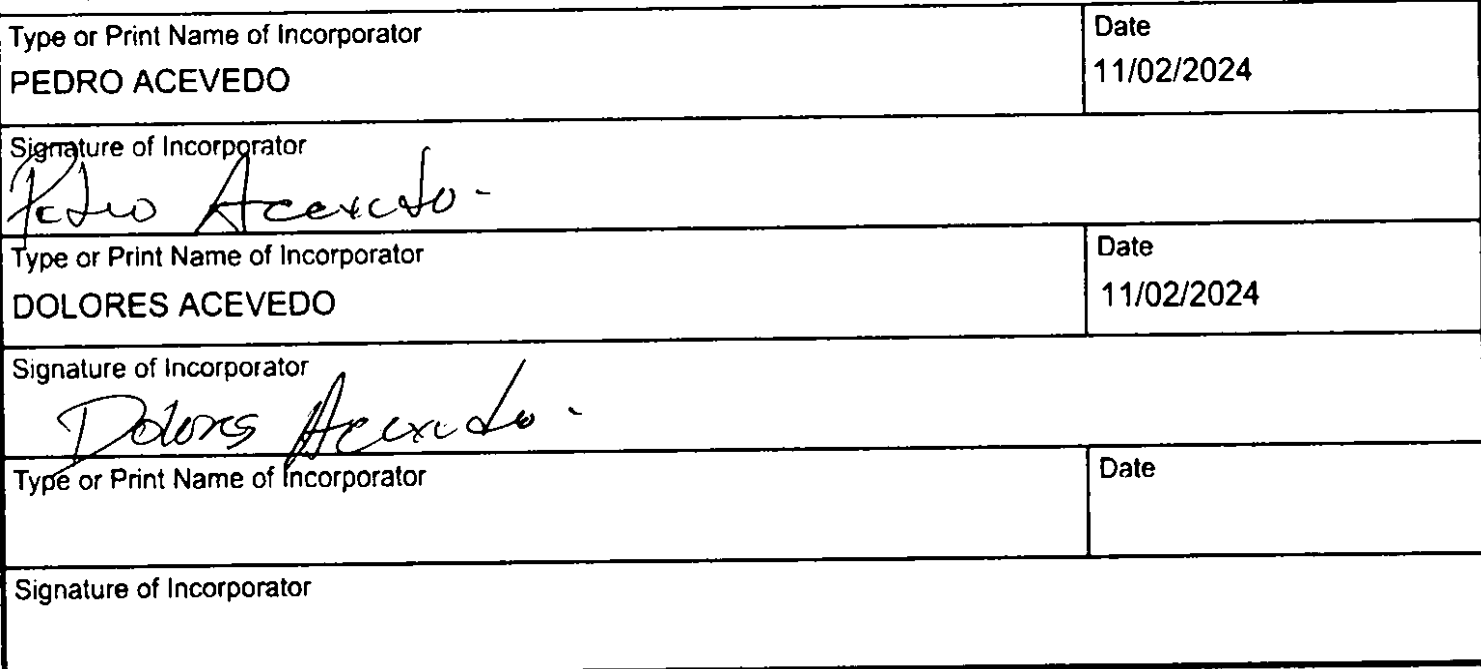 Type or Print Name of Incorporator
Date
PEDRO ACEVEDO
11/02/2024
Signature of Incorporator
Pedro Acevedo-
Type or Print Name of Incorporator
Date
DOLORES ACEVEDO
11/02/2024
Signature of Incorporator
Dolores Acevedo-
Type or Print Name of Incorporator
Date
Signature of Incorporator